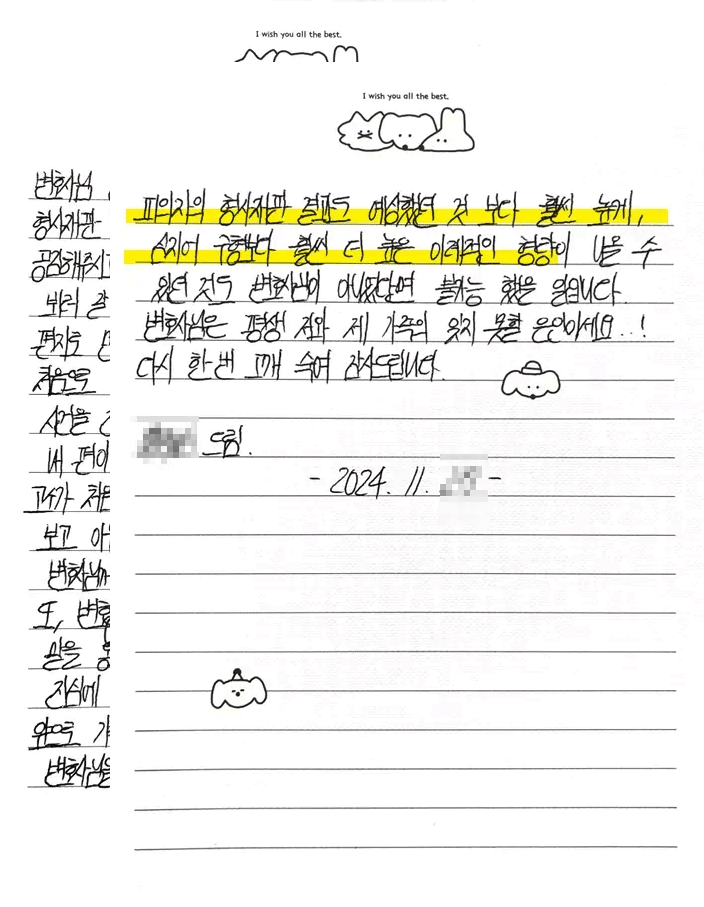 I wish you all the best.
I wish you all the best.
변호사님
형사재판
공감해주시
보러 갈
편지로
처음으로
사건을
내 편이
고가 처음
보고
변호사님께
또, 변호
일을
진심에
앞으로
변호사님을
피의자의 형사재판 결과도 예상했던 것 보다 훨씬 높게,
심지어 구형보다 훨씬 더 높은 이례적인 형량이 나올 수
있던 것도 변호사님이 아니었다면 불가능 했을 일입니다.
변호사님은 평생 저와 제 가족의 잊지 못할 은인이세요..!
다시 한 번 고개 숙여 감사드립니다.
드림.
- 2024. 11. -